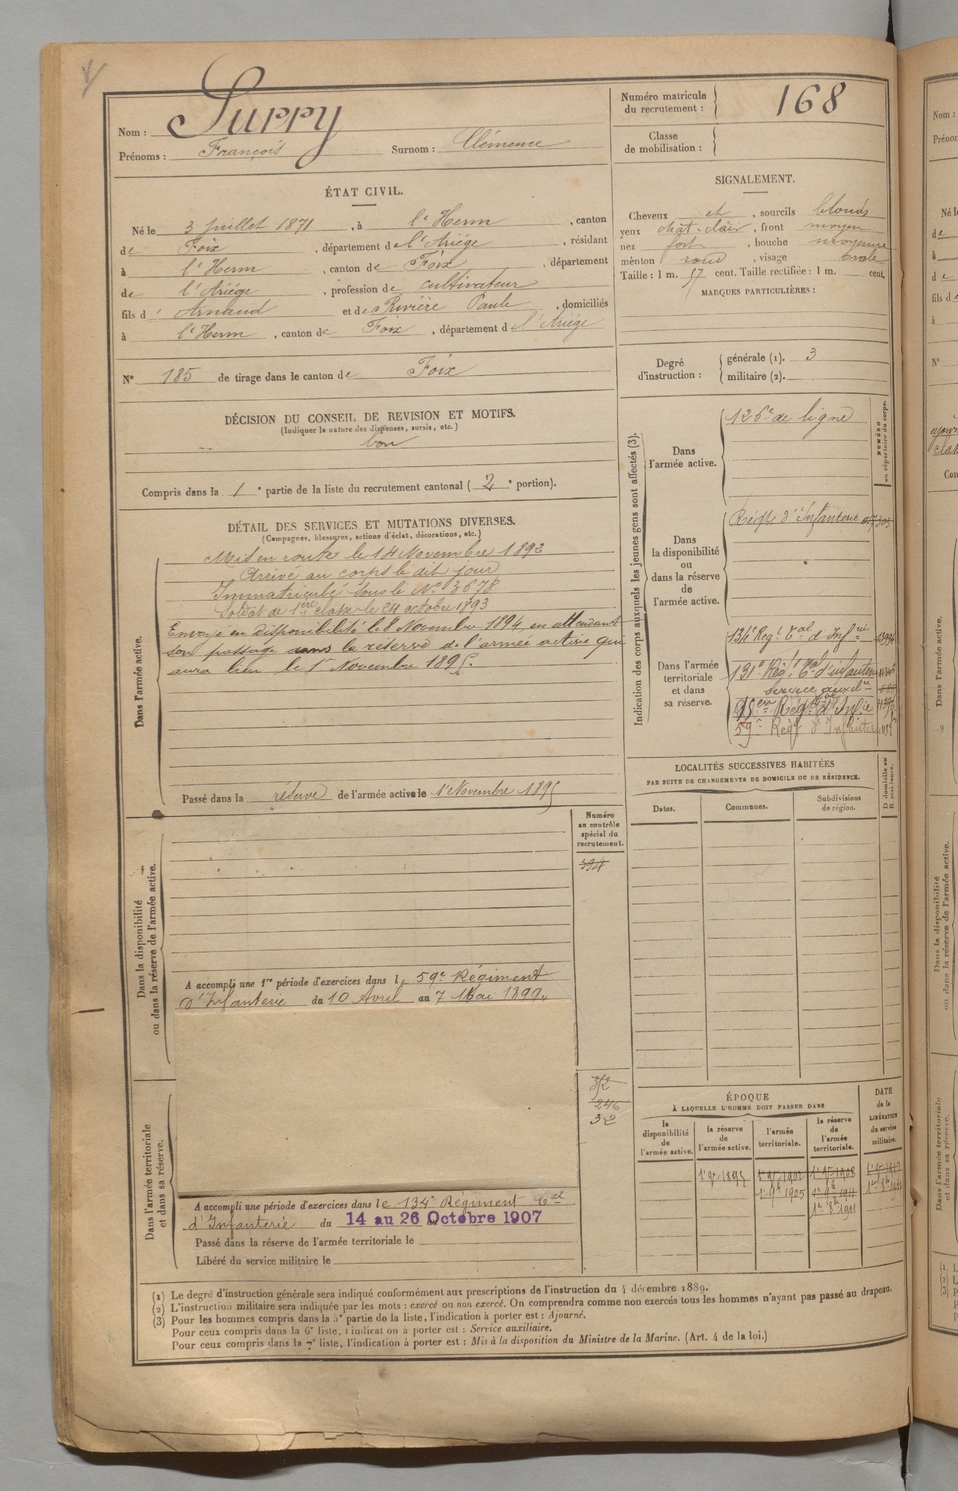 Nom : Surry
Prénoms : François Surnom : Clémence
Numéro matricule
du recrutement : 168
Classe
de mobilisation :
ÉTAT CIVIL.
Né le 3 juillet 1871, à l'Herm, canton
de Foix, département de l'Ariège, résidant
à l'Herm, canton de Foix, département
de l'Ariège, profession de cultivateur
fils d' Arnaud et de Rivière Paule, domiciliés
à l'Herm, canton de Foix, département d l'Ariège
N° 185 de tirage dans le canton de Foix
SIGNALEMENT.
Cheveux et, sourcils blonds
yeux chât. clair, front moyen
nez fort, bouche moyenne
menton rond, visage ovale
Taille : 1 m. 57 cent. Taille rectifiée : 1 m. cent.
MARQUES PARTICULIÈRES :
Degré
d'instruction :
générale (1). 3
militaire (2).
DÉCISION DU CONSEIL DE REVISION ET MOTIFS.
(Indiquer la nature des dispenses, sursis, etc.)
bon
Compris dans la 1e partie de la liste du recrutement cantonal (2e portion).
DÉTAIL DES SERVICES ET MUTATIONS DIVERSES.
(Campagnes, blessures, actions d'éclat, décorations, etc.)
Dans l'armée active.
Mis en route le 14 Novembre 1892
Arrivé au corps le dit jour
Immatriculé sous le N° 3678
Soldat de 1ère classe le 24 octobre 1893
Envoyé en disponibilité le 8 Novembre 1894 en attendant
son passage dans la réserve de l'armée active qui
aura lieu le 1er Novembre 1895.
Passé dans la réserve de l'armée active le 1er Novembre 1895
Indication des corps auxquels les jeunes gens sont affectés (3).
NUMÉRO
au répertoire du corps.
Dans
l'armée active.
126e de ligne
Dans
la disponibilité
ou
dans la réserve
de
l'armée active.
Régt d'Infanterie
Dans l'armée
territoriale
et dans
sa réserve.
134e Régt Tal d'Infrie
131e Régt Tal d'infanterie
service auxil
59e Régt d'Infanterie
LOCALITÉS SUCCESSIVES HABITÉES
PAR SUITE DE CHANGEMENTS DE DOMICILE OU DE RÉSIDENCE.
Dates.
Communes.
Subdivisions
de région.
D domicile ou
R résidence.
Numéro
au contrôle
spécial du
recrutement.
594
Dans la disponibilité
ou dans la réserve de l'armée active.
A accompli une 1re période d'exercices dans le 59e Régiment
d'Infanterie du 10 Avril au 7 Mai 1899.
246
32
Dans l'armée territoriale
et dans sa réserve.
A accompli une période d'exercices dans le 134e Régiment Tal
d'Infanterie du 14 au 26 Octobre 1907
Passé dans la réserve de l'armée territoriale le
Libéré du service militaire le
ÉPOQUE
À LAQUELLE L'HOMME DOIT PASSER DANS
la
disponibilité
de
l'armée active.
la réserve
de
l'armée active.
l'armée
territoriale.
la réserve
de
l'armée
territoriale.
DATE
de la
LIBÉRATION
du service
militaire.
1er 9bre 1895
(1) Le degré d'instruction générale sera indiqué conformément aux prescriptions de l'instruction du 4 décembre 1889.
(2) L'instruction militaire sera indiquée par les mots : exercé ou non exercé. On comprendra comme non exercés tous les hommes n'ayant pas passé au drapeau.
(3) Pour les hommes compris dans la 5e partie de la liste, l'indication à porter est : Ajourné.
Pour ceux compris dans la 6e liste, l'indication à porter est : Service auxiliaire.
Pour ceux compris dans la 7e liste, l'indication à porter est : Mis à la disposition du Ministre de la Marine. (Art. 4 de la loi.)